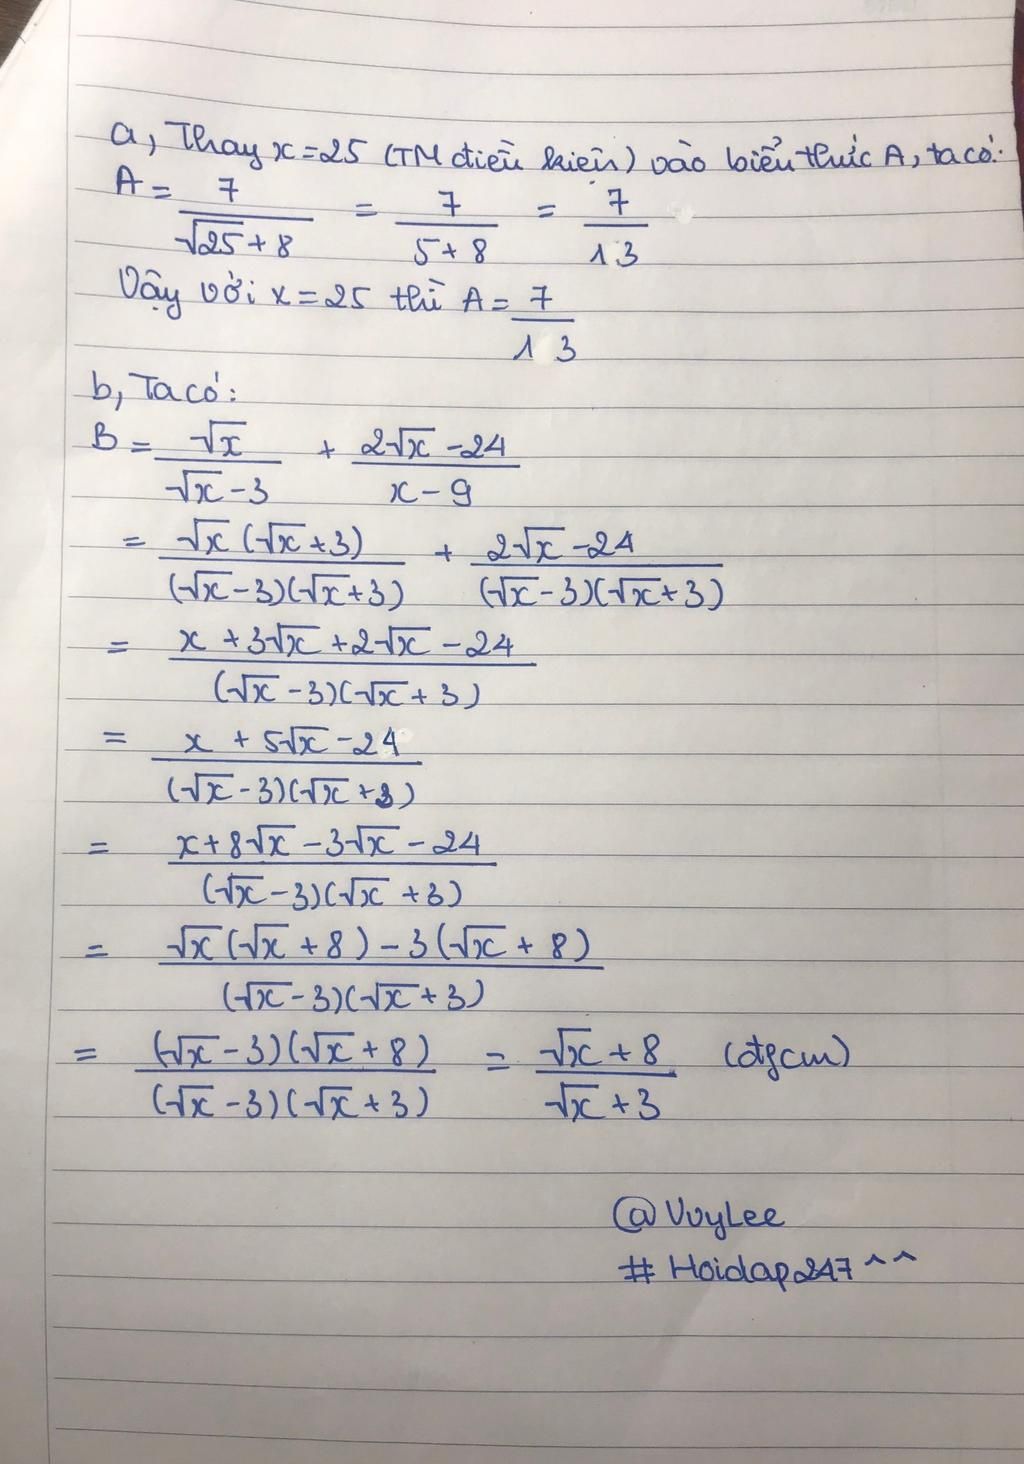 a, Thay x=25 (TM điều kiện) vào biểu thức A, ta có:
A = 7/(√25 + 8) = 7/(5+8) = 7/13
Vậy với x=25 thì A = 7/13
b, Ta có:
B = √x/(√x-3) + (2√x-24)/(x-9)
= √x(√x+3)/((√x-3)(√x+3)) + (2√x-24)/((√x-3)(√x+3))
= (x+3√x+2√x-24)/((√x-3)(√x+3))
= (x+5√x-24)/((√x-3)(√x+3))
= (x+8√x-3√x-24)/((√x-3)(√x+3))
= (√x(√x+8)-3(√x+8))/((√x-3)(√x+3))
= ((√x-3)(√x+8))/((√x-3)(√x+3)) = (√x+8)/(√x+3) (đfcm)
@VuyLee
#Hoidap247^^